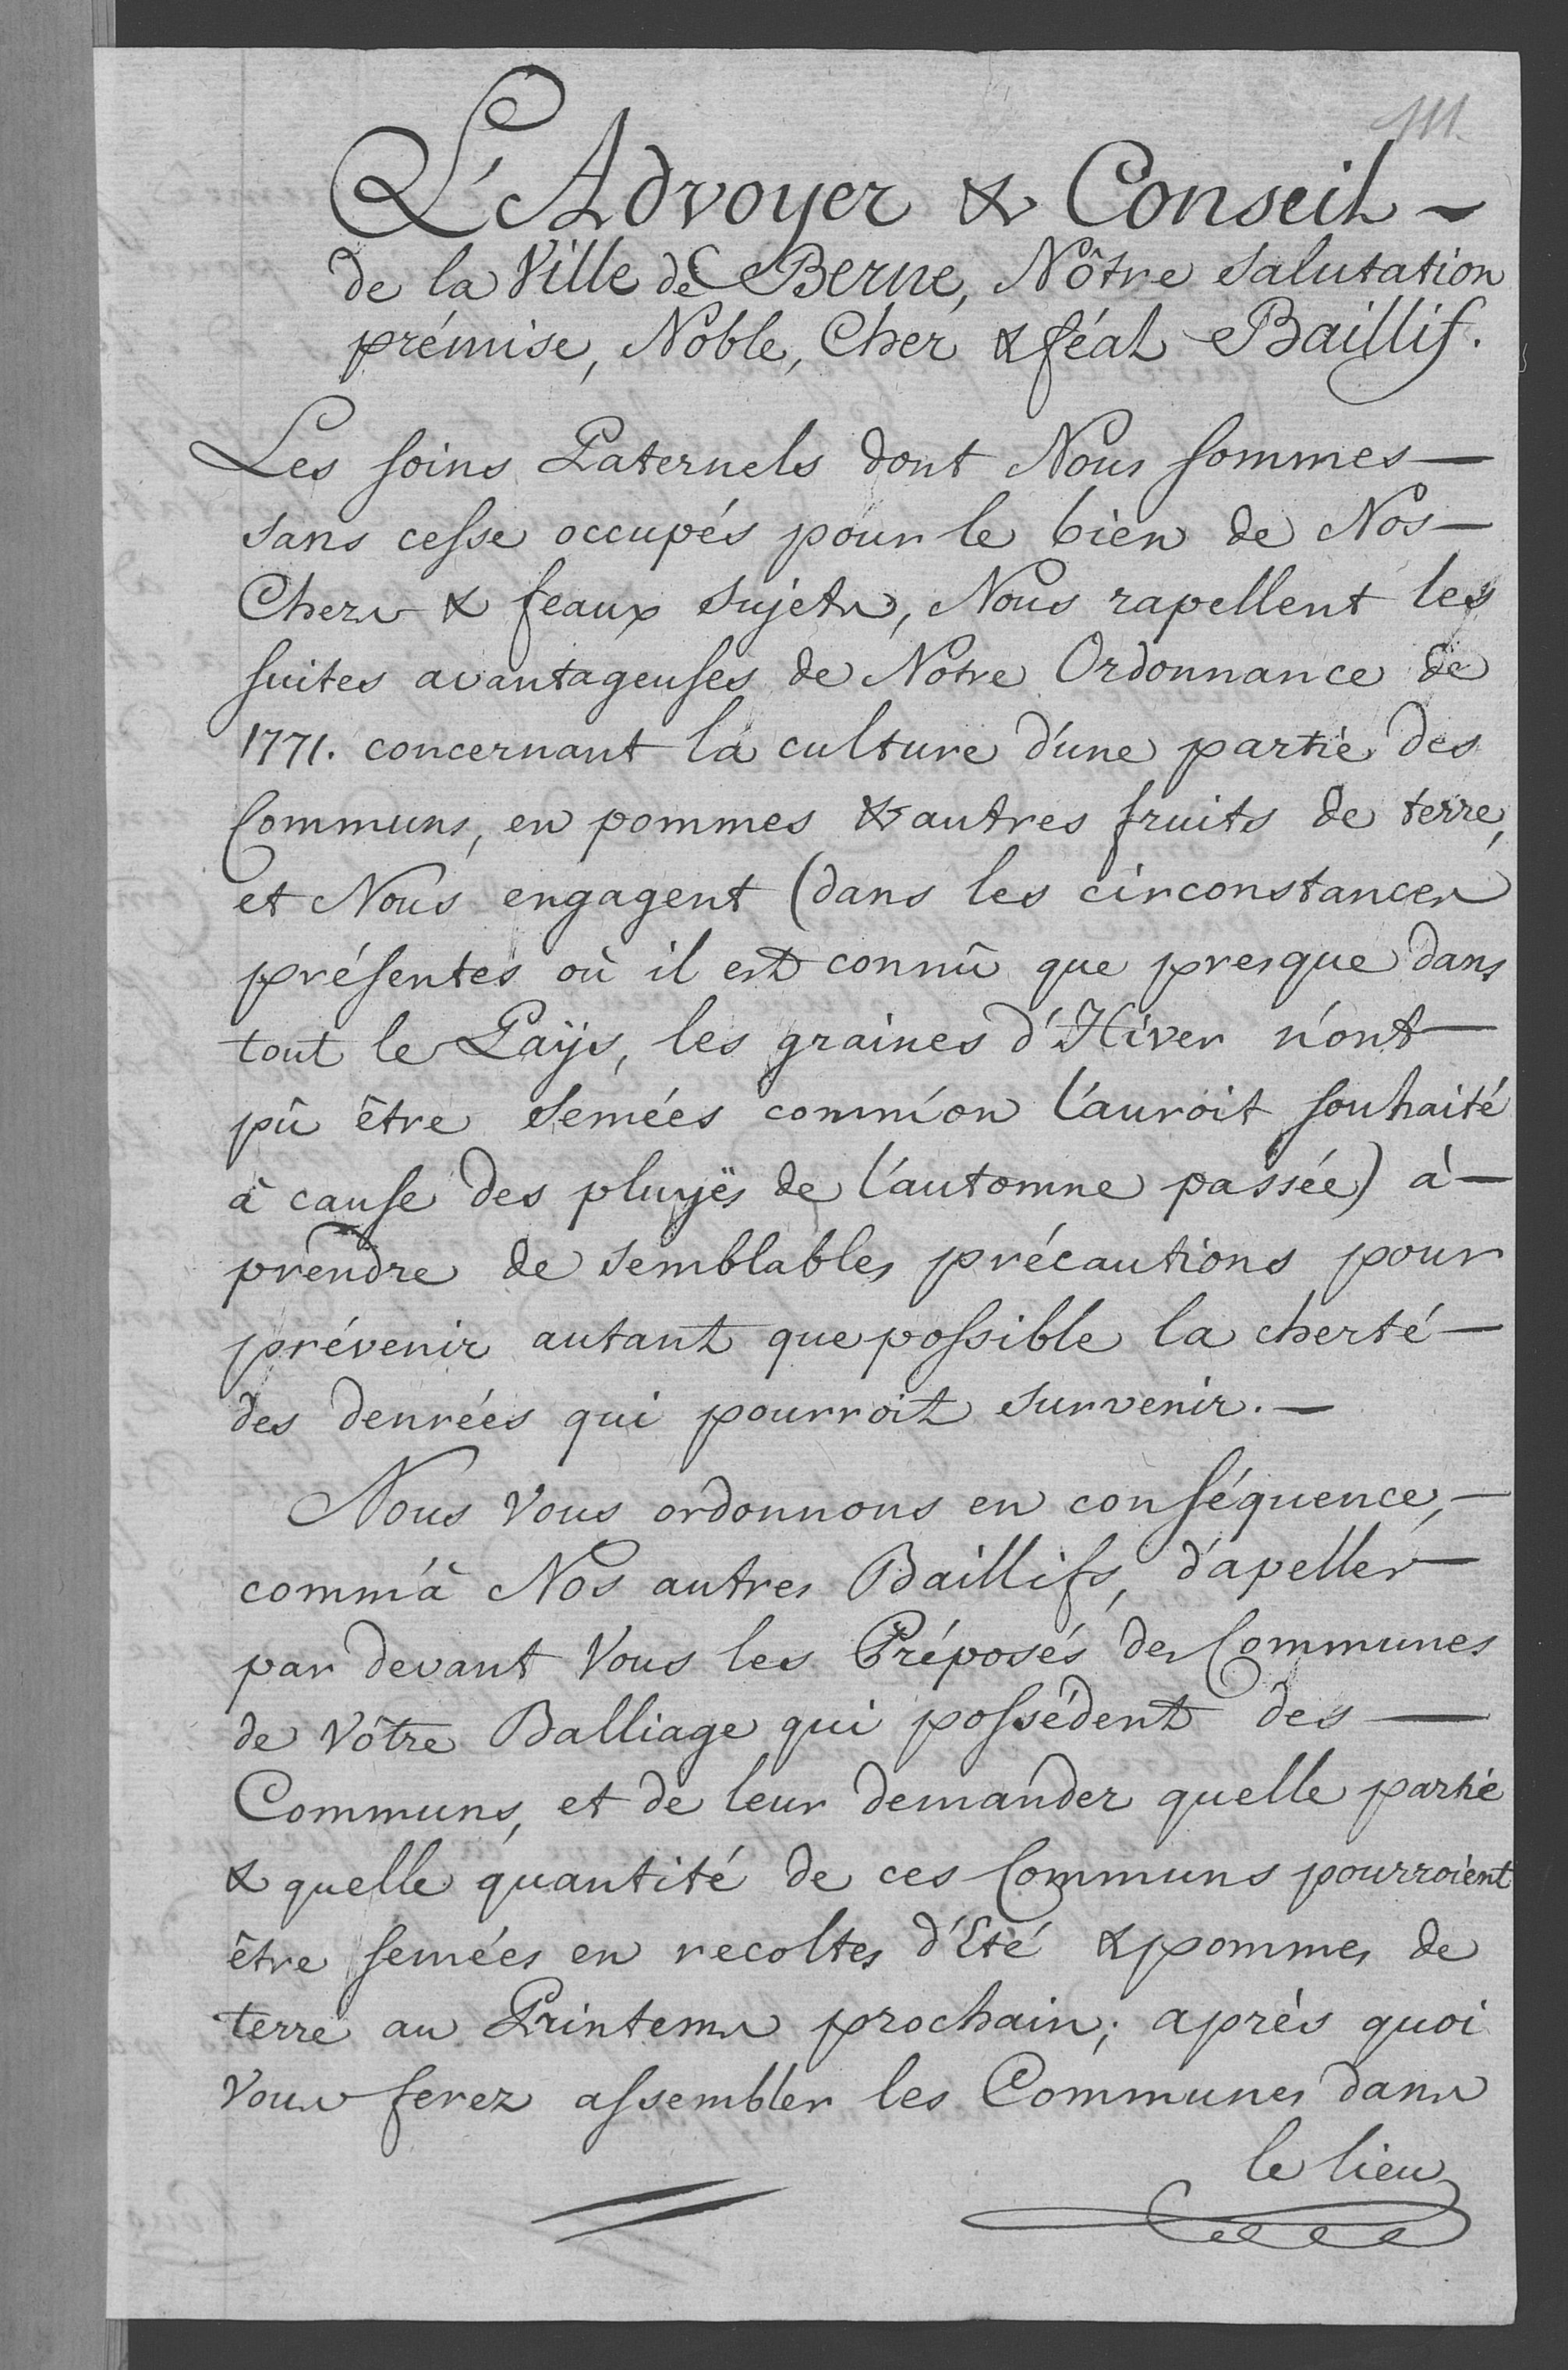 111.
L'Advoyer & Conseil
de la Ville de Berne, Nôtre salutation
prémise, Noble, Cher & féal Baillif.
Les soins Paternels dont Nous sommes
sans cesse occupés pour le bien de Nos
Chers & feaux sujets, Nous rapellent les
suites avantageuses de Notre Ordonnance de
1771. concernant la culture d'une partie des
Communs, en pommes & autres fruits de terre,
et Nous engagent (dans les circonstances
présentes où il est connû que presque dans
tout le Païs, les graines d'Hiver n'ont
pû être semées comm'on l'auroit souhaité
à cause des pluyës de l'automne passée) à
prendre de semblables précautions pour
prévenir autant que possible la cherté
des denrées qui pourroit survenir.
Nous vous ordonnons en conséquence,
comm'à Nos autres Baillifs, d'apeller
par devant Vous les Préposés des Communes
de Vôtre Balliage qui possédent des
Communs, et de leur demander quelle partie
& quelle quantité de ces Communs pourroient
être semées en recoltes d'Eté & pommes de
terre au Printems prochain; après quoi
Vous ferez assembler les Communes dans
le lieu